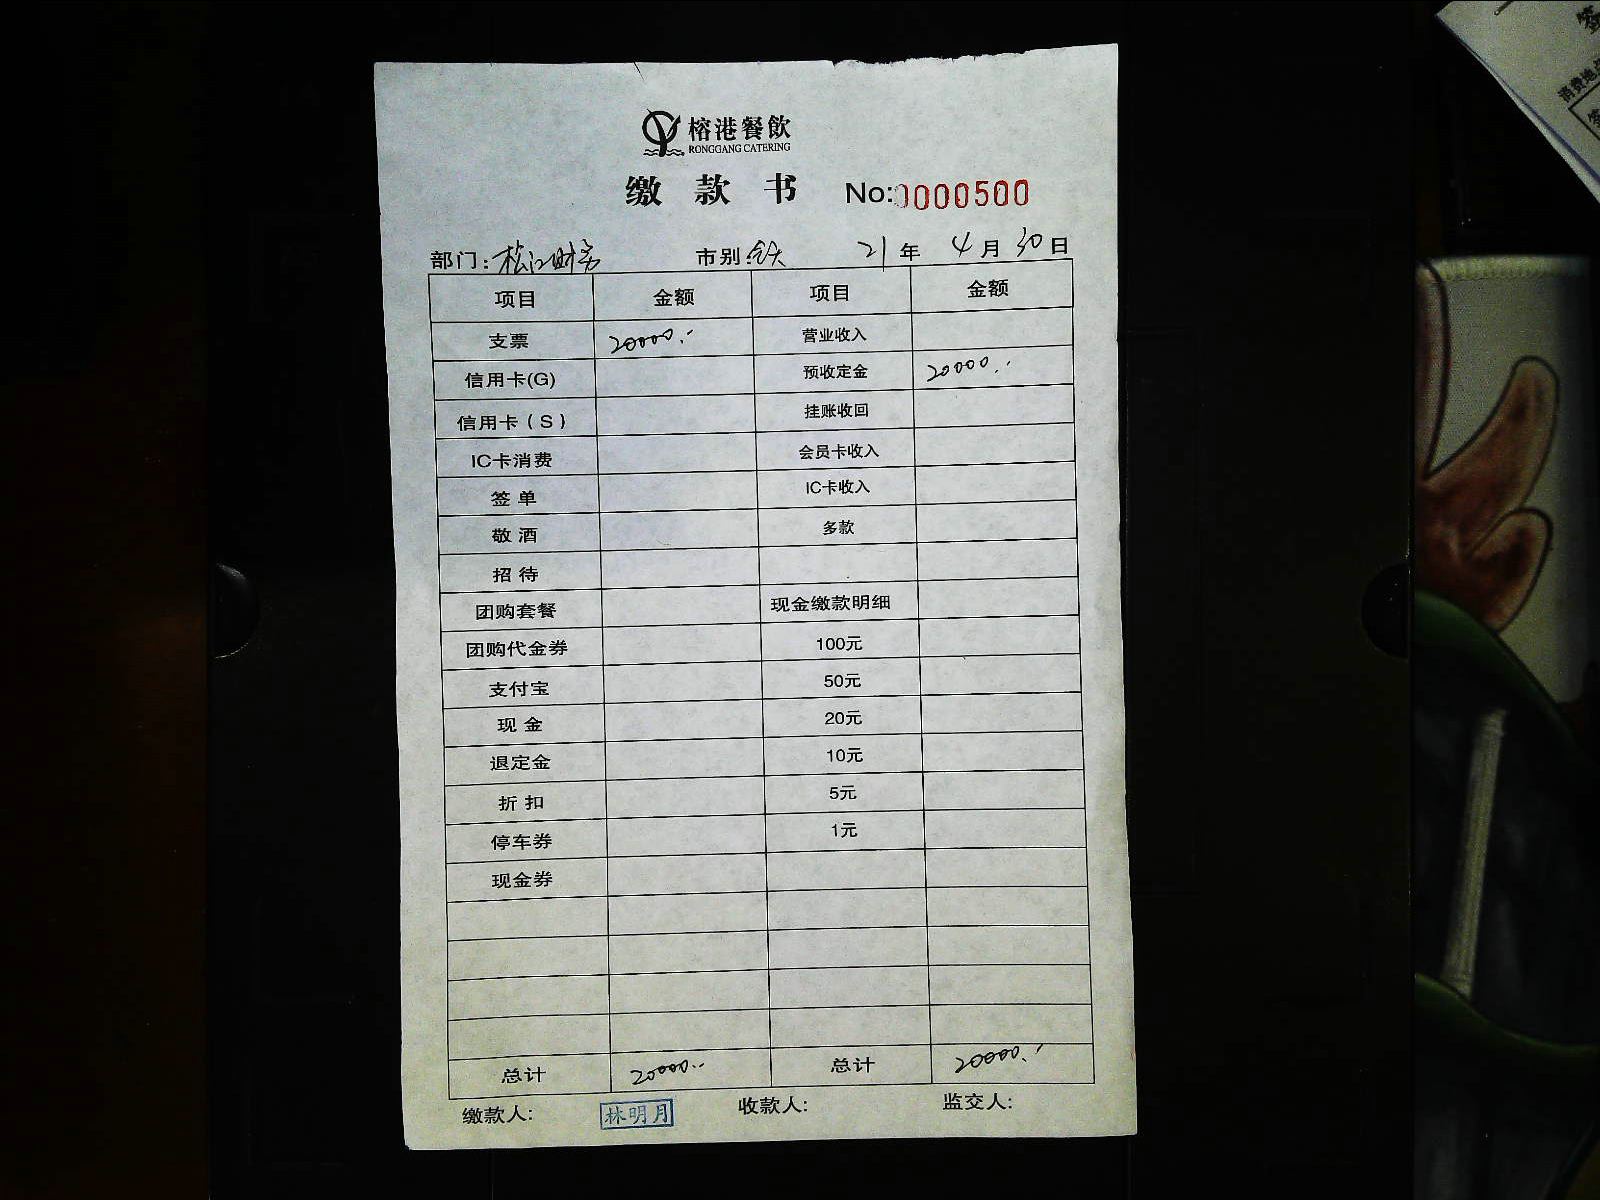 榕港餐飲
RONGGANG CATERING
缴款书 No:0000500
部门:松江财务 市别:全天 21年4月30日
项目 金额 项目 金额
支票 20000.- 营业收入
信用卡(G) 预收定金 20000.-
信用卡(S) 挂账收回
IC卡消费 会员卡收入
签单 IC卡收入
敬酒 多款
招待
团购套餐 现金缴款明细
团购代金券 100元
支付宝 50元
现金 20元
退定金 10元
折扣 5元
停车券 1元
现金券
总计 20000.- 总计 20000.-
缴款人: 林明月 收款人: 监交人:
消费地